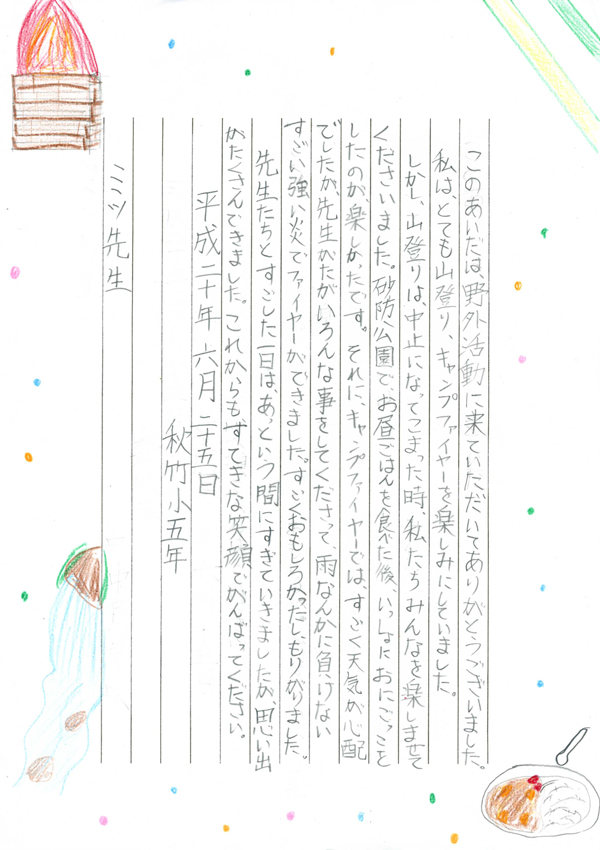 このあいだは、野外活動に来ていただいてありがとうございました。
私は、とても山登り、キャンプファイヤーを楽しみにしていました。
しかし、山登りは、中止になってこまった時、私たちみんなを楽しませて
くださいました。砂防公園で、お昼ごはんを食べた後、いっしょにおにごっこを
したのが、楽しかったです。それに、キャンプファイヤーでは、すごく天気が心配
でしたが、先生がたがいろんな事をしてくださって、雨なんかに負けない
すごい強い炎でファイヤーができました。すごくおもしろかったし、もりがりました。
先生たちとすごした一日は、あっという間にすぎていきましたが、思い出
がたくさんできました。これからも、すてきな笑顔でがんばってください。
平成二十年六月二十五日
秋竹小五年
ミミツ先生